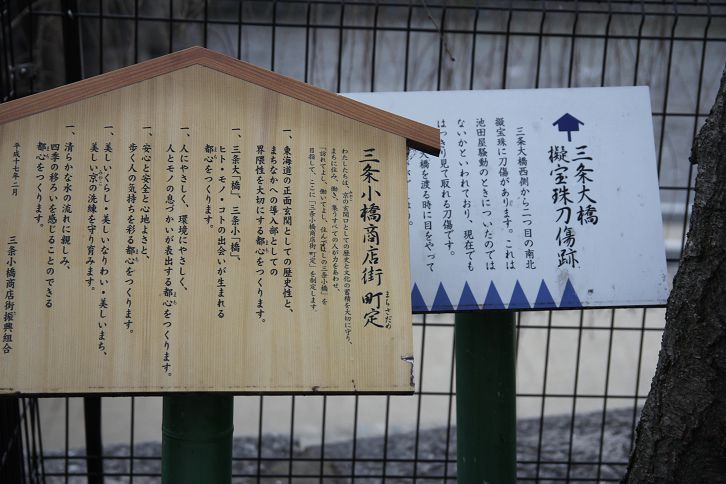 三条小橋商店街 町定
まちさだめ
わたしたちは、京の玄関口としての歴史と文化の蓄積を大切に守り、
まちに住む人、働き、集うすべての人が力をあわせ、
「訪れてよし、働いてよし、住んでよしの三条小橋」を
目指して、ここに「三条小橋商店街 町定」を制定します。
一、東海道の正面玄関としての歴史性と、
まちなかへの導入部としての
界隈性を大切にする都心をつくります。
一、三条大「橋」、三条小「橋」、
ヒト・モノ・コトの出会いが生まれる
都心をつくります。
一、人にやさしく、環境にやさしく、
人とモノの息づかいが表出する都心をつくります。
一、安心と安全と心地よさと、
歩く人の気持ちを彩る都心をつくります。
一、美しいくらし・美しいなりわい・美しいまち、
美しい京の洗練を守り育みます。
一、清らかな水の流れに親しみ、
四季の移ろいを感じることのできる
都心をつくります。
平成十七年二月
三条小橋商店街振興組合
三条大橋
擬宝珠刀傷跡
三条大橋西側から二つ目の南北
擬宝珠に刀傷があります。これは
池田屋騒動のときについたのでは
ないかといわれており、現在でも
はっきり見て取れる刀傷です。
大橋を渡る時に目をやって